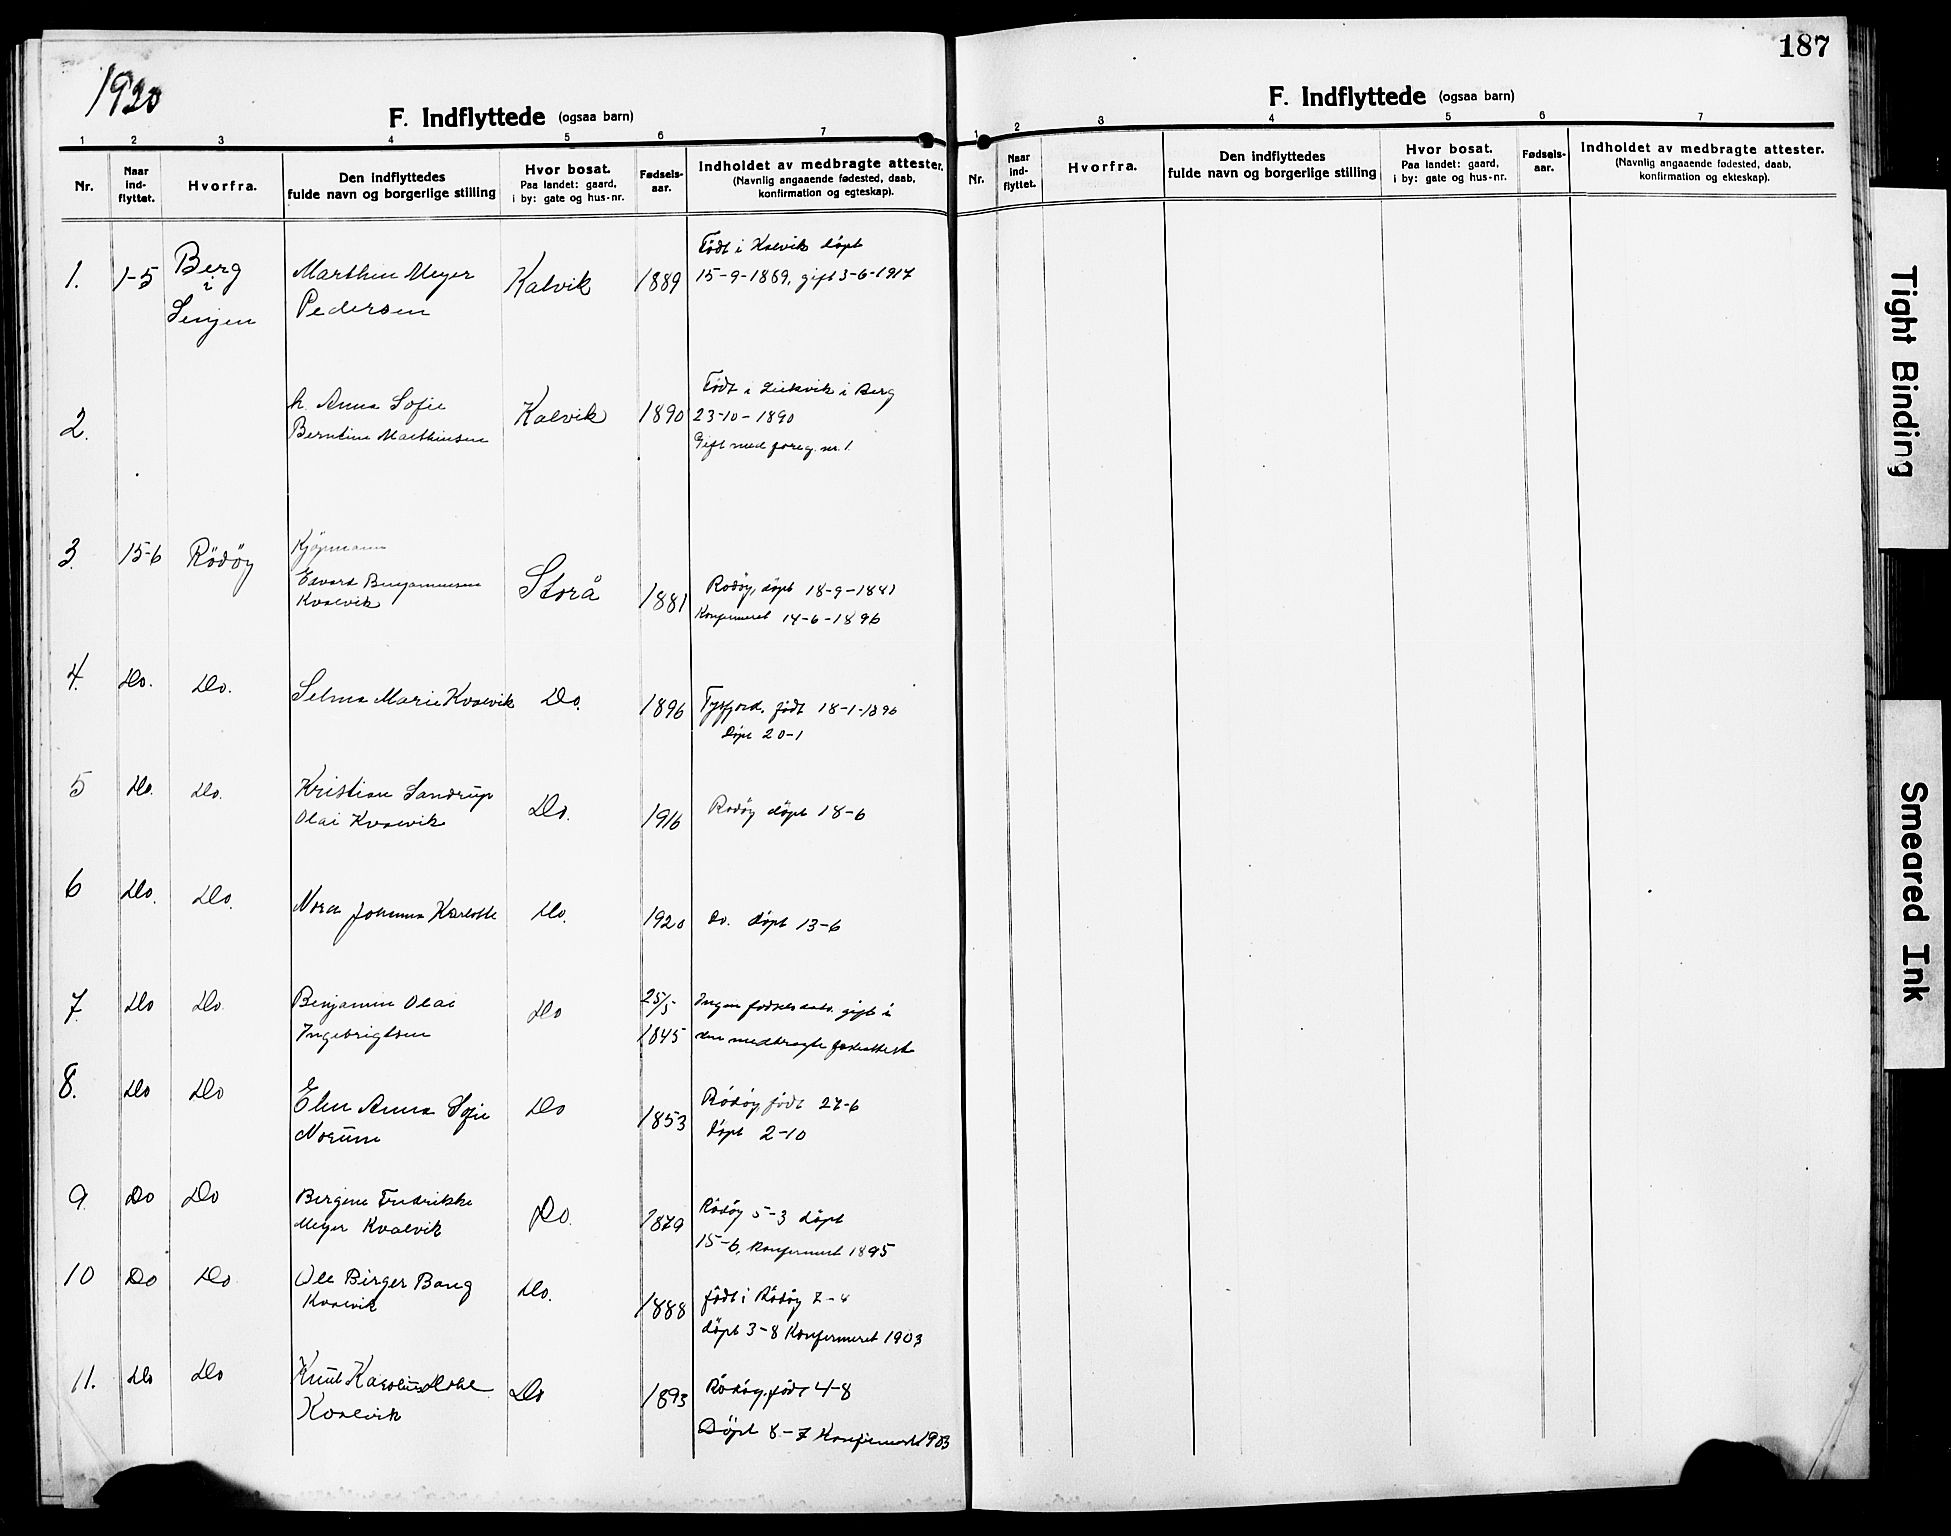 1920
F. Indflyttede (ogsaa barn)
1 2 3 4 5 6 7
Nr. Naar ind-flyttet. Hvorfra. Den indflyttedes fulde navn og borgerlige stilling Hvor bosat. Paa landet: gaard, i by: gate og hus-nr. Fødsels-aar. Indholdet av medbragte attester. (Navnlig angaaende fødested, daab, konfirmation og egteskap).
1. 1-5 Berg i Senjen
Marthin Meyer
Pedersen
Kalvik 1889
Født i Kalvik døpt
15-9-1889, gift 3-6-1917
2.
h. Anna Sofie
Berntine Marthinsen
Kalvik 1890
Født i i Berg
23-10-1890
Gift med foreg. nr. 1.
3. 15-6 Rödöy
Kjöpmann
Edvard Benjaminsen
Kvalvik
Storå 1881
Rodöy, døpt 18-9-1881
Konfirmeret 14-6-1896
4. Do. Do.
Selma Marie Kvalvik Do. 1896
Tysfjord. født 18-1-1896
Døpt 20-1
5 Do. Do.
Kristian Sandrup
Olai Kvalvik
Do. 1916
Rodöy døpt 18-6
6 Do. Do.
Nora Johanna Karlotte Do. 1920
Do. døpt 13-6
7. Do Do
Benjamin Olai
Ingebrigtsen
Do 25/5
1845
Ingen fødselsdato. gift i
den medbragte
8. Do Do
Elen Anna Sofie
Norum
Do 1853
Rödöy, født 27-6
døpt 2-10
9. Do Do
Bergine Fredrikke
Meyer Kvalvik
Do. 1879
Rödöy 5-3 døpt
15-6, Konfirmert 1895
10 Do Do
Ole Birger Bang
Kvalvik
Do. 1888
født i Rödöy 7-4
døpt 3-8 Konfirmeret 1903
11. Do Do
Knut Karolius
Kvalvik
Do 1893
Rödöy, født 4-8
Døpt 8-7 Konfirmert 1903
187
F. Indflyttede (ogsaa barn)
1 2 3 4 5 6 7
Nr. Naar ind-flyttet. Hvorfra. Den indflyttedes fulde navn og borgerlige stilling Hvor bosat. Paa landet: gaard, i by: gate og hus-nr. Fødsels-aar. Indholdet av medbragte attester. (Navnlig angaaende fødested, daab, konfirmation og ekteskap).
Tight Binding
Smeared Ink